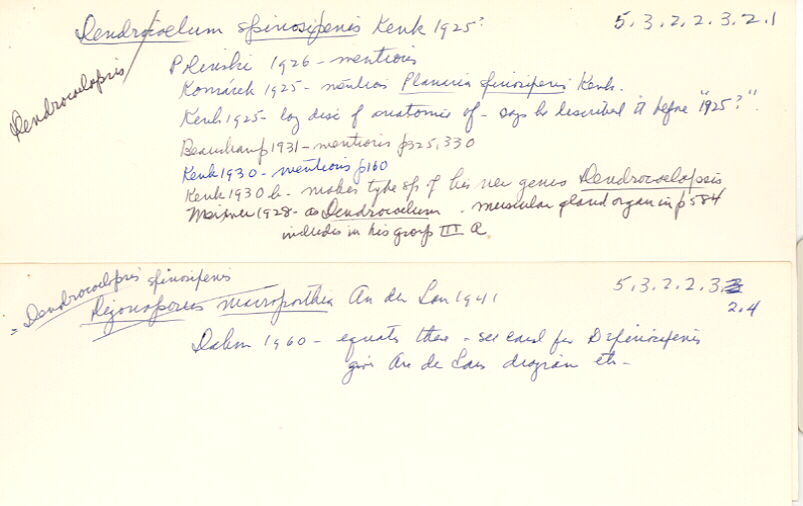 Dendrocoelum spinosipenis Kenk 1925? 5.3.2.2.3.2.1
Dendrocoelopsis
Polinski 1926 - mentions
Komárek 1925 - mentions Planaria spinosipenis Kenk.
Kenk 1925 - long disc of anatomie of - says he described it before "1925?".
Beauchamp 1931 - mentions p325, 330
Kenk 1930 - mentions p160
Kenk 1930 b - makes type sp of his new genus Dendrocoelopsis
Meixner 1928 - as Dendrocoelum. muscular gland organ in p 584
includes in his group III a.
= Dendrocoelopsis spinosipenis
macroposthia An der Lan 1941 5.3.2.2.3.
2.4
Dahm 1960 - equates these - see card for D spinosipenis
give An de Lans diagram etc -